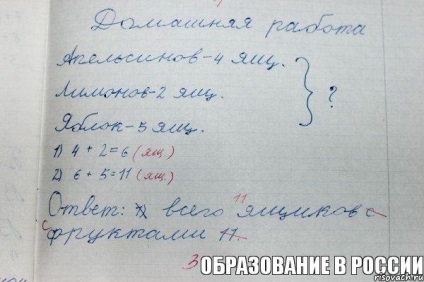 Домашняя работа
Апельсинов-4 ящ.
Лимонов-2 ящ.
?
Яблок-5 ящ.
1) 4 + 2 = 6 (ящ.)
2) 6 + 5 = 11 (ящ.)
11
Ответ: всего ящиков с
с
фруктами 11.
3
ОБРАЗОВАНИЕ В РОССИИ
risovach.ru